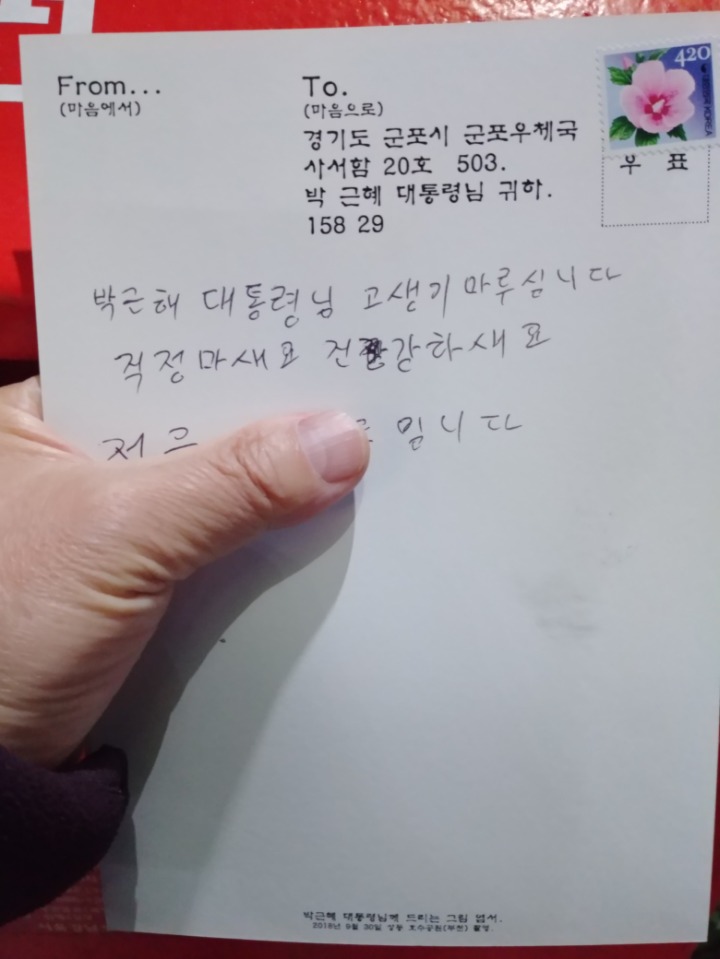 From...
(마음에서)
To.
(마음으로)
경기도 군포시 군포우체국
사서함 20호 503.
박 근혜 대통령님 귀하.
158 29
420
KOREA
우 표
박근해 대통령님 고생기 마루십니다
걱정마새요 건강하새요
저는
입니다
박근혜 대통령님께 드리는 그림 엽서.
2018년 9월 30일 상동 호수공원(부천) 촬영.